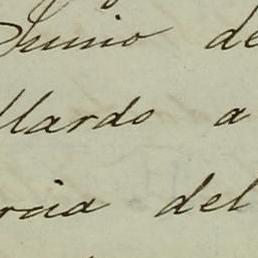 Junio de
llardo a
rcia del